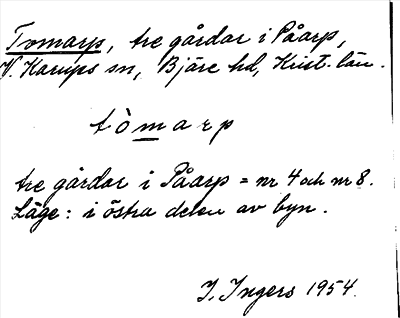 Tomarp, tre gårdar i Påarp,
V. Karups sn, Bjäre hd, Krist. län.
tòmarp
tre gårdar i Påarp = nr 4 och nr 8.
Läge: i östra delen av byn.
I. Ingers 1954.